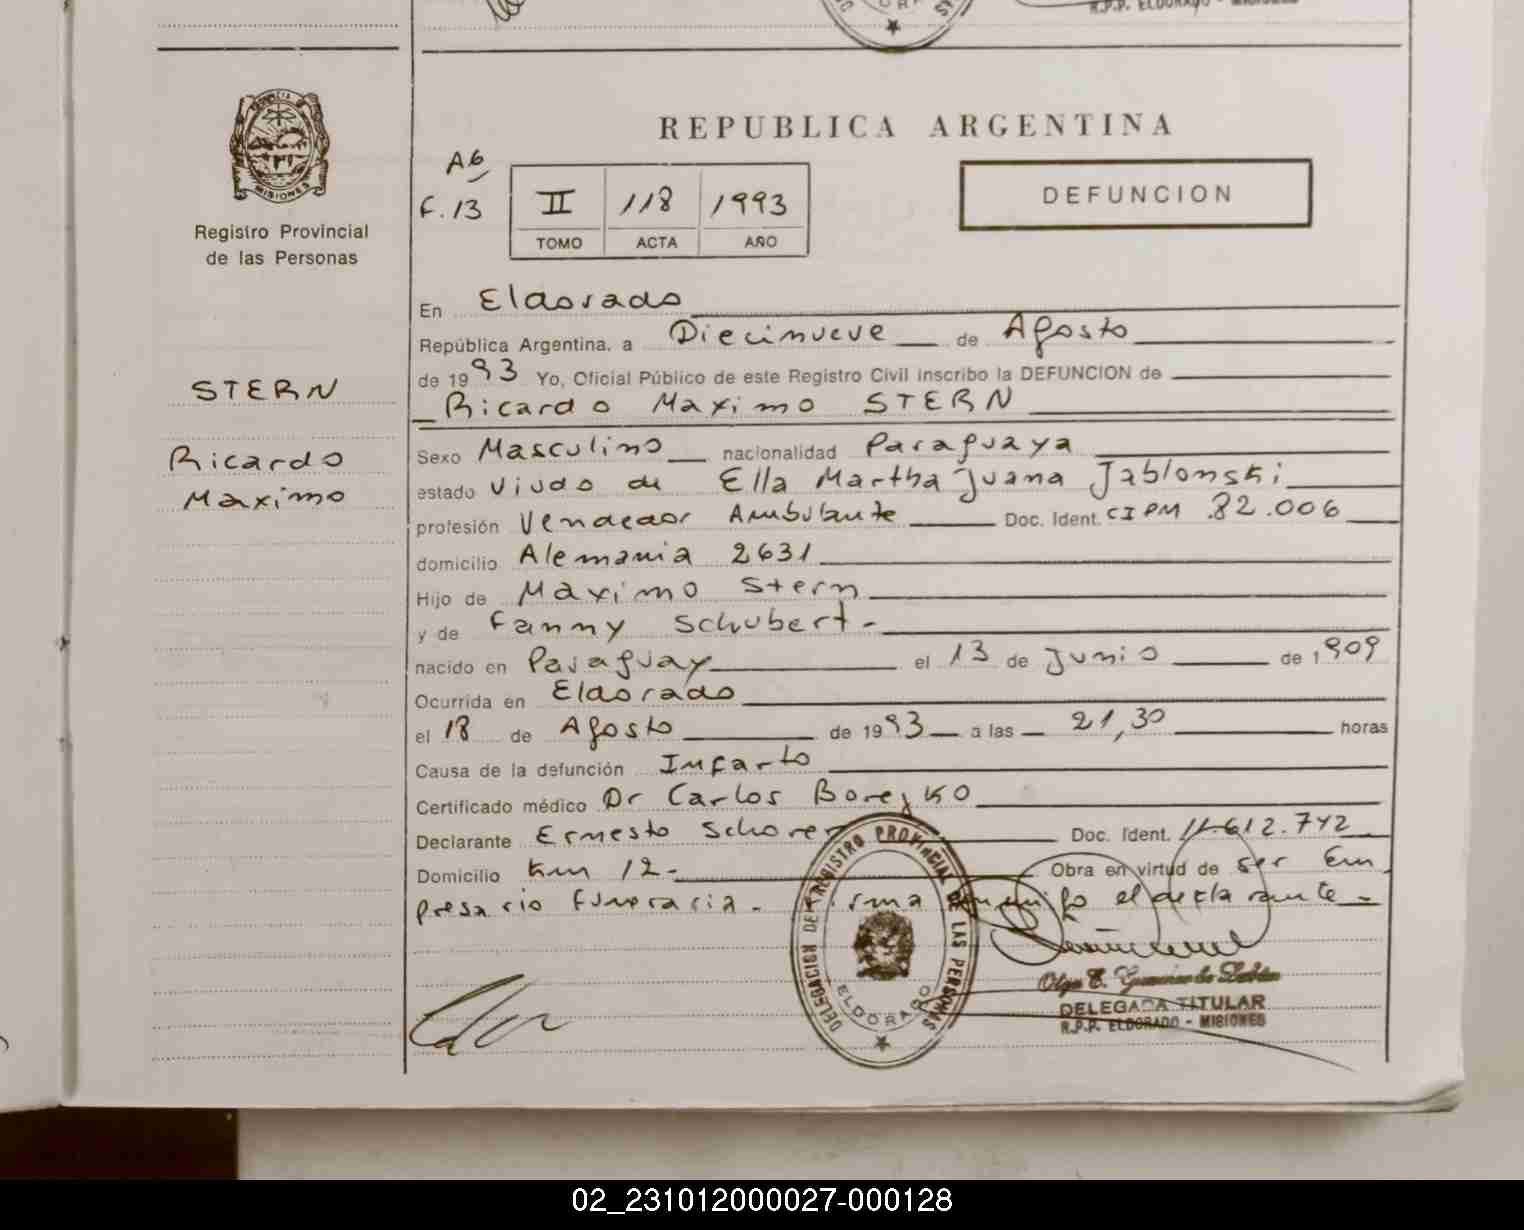 R.P.P. ELDORADO - MISIONES
PROVINCIA DE MISIONES
Registro Provincial
de las Personas
STERN
Ricardo
Maximo
REPUBLICA ARGENTINA
A6
F. 13
II 118 1993
TOMO ACTA AÑO
DEFUNCION
En Eldorado
República Argentina, a Diecinueve de Agosto
de 1993 Yo, Oficial Público de este Registro Civil inscribo la DEFUNCION de
Ricardo Maximo STERN
Sexo Masculino nacionalidad Paraguaya
estado Viudo de Ella Martha Juana Jablonski
profesión Vendedor Ambulante Doc. Ident. CIPM 82.006
domicilio Alemania 2631
Hijo de Maximo Stern
y de Fanny Schubert.-
nacido en Paraguay el 13 de Junio de 1909
Ocurrida en Eldorado
el 18 de Agosto de 1993 a las 21,30 horas
Causa de la defunción Infarto
Certificado médico Dr Carlos Borejko
Declarante Ernesto Schorer Doc. Ident. 11.612.742
Domicilio Km 12.- Obra en virtud de ser Em
presario Funeraria.- Firma conmigo el declarante.-
DELEGACION DEL REGISTRO PROVINCIAL DE LAS PERSONAS
ELDORADO
Olga E.
DELEGADA TITULAR
R.P.P. ELDORADO - MISIONES
02_231012000027-000128